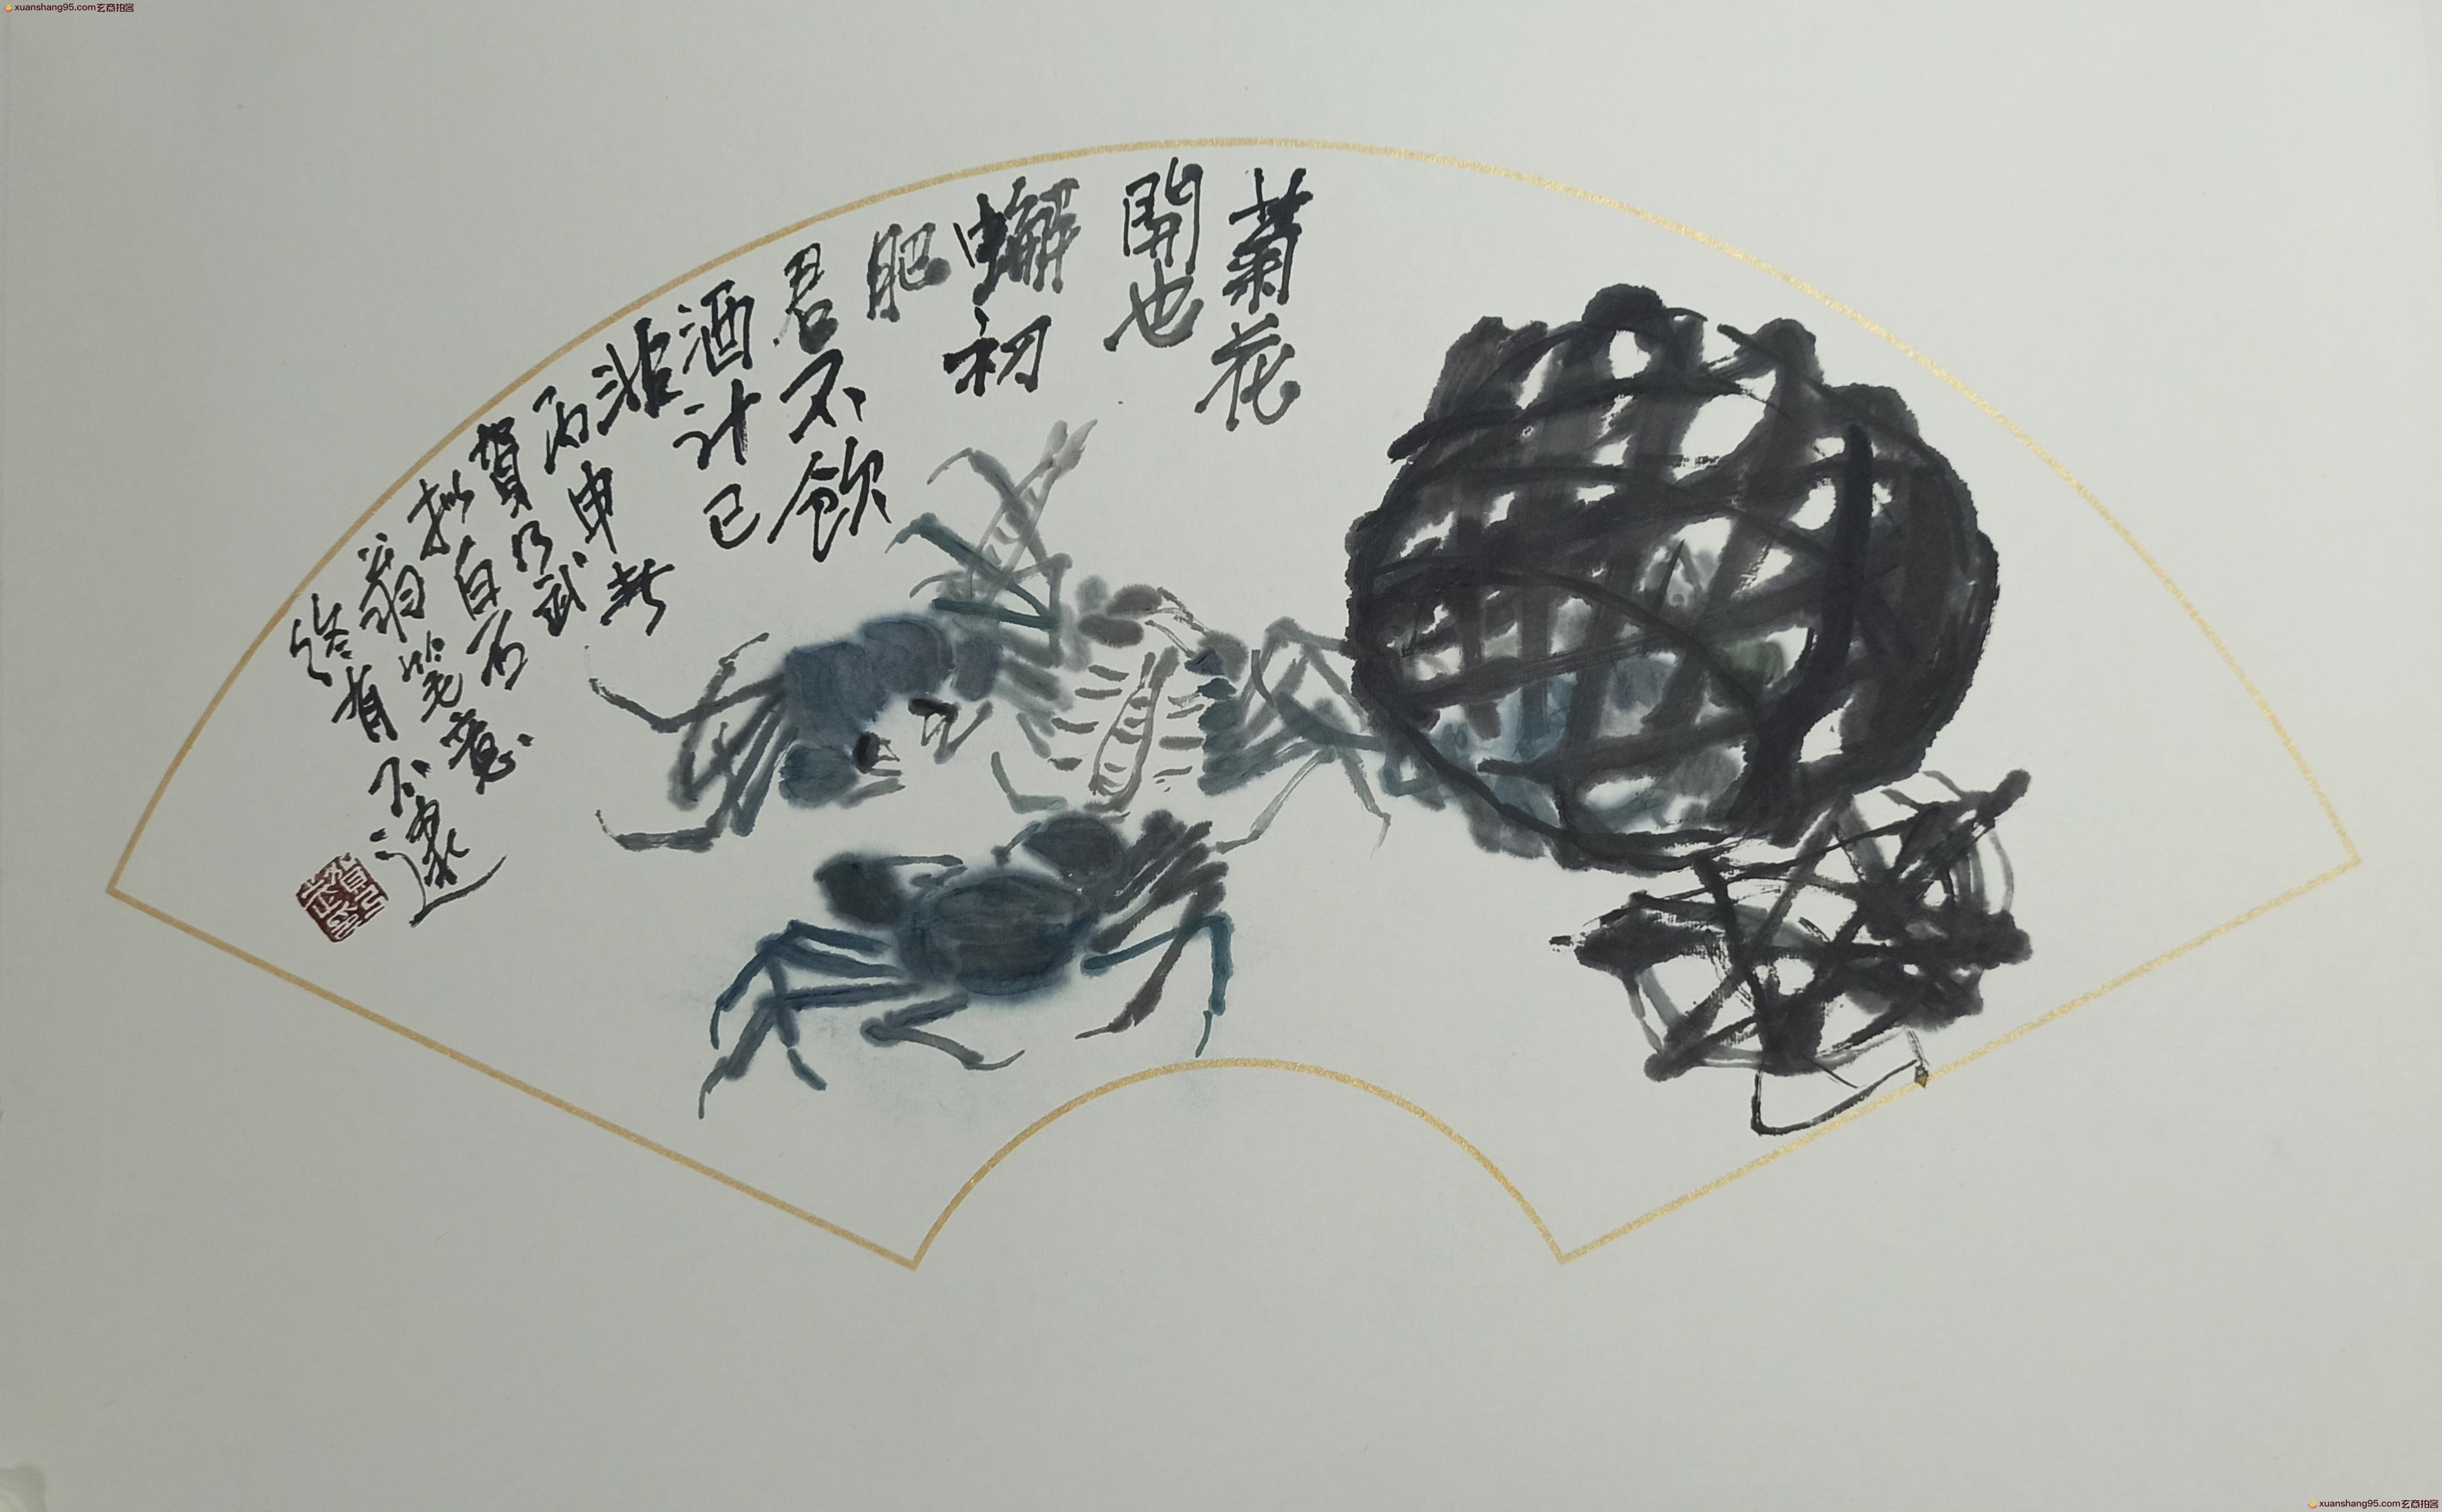 xuanshang95.com玄商拍客
菊花
開也
蠏初
肥
君不飲
酒計已
丙申春
賀乃武
拟白石
翁笔意
终有不
xuanshang95.com玄商拍客